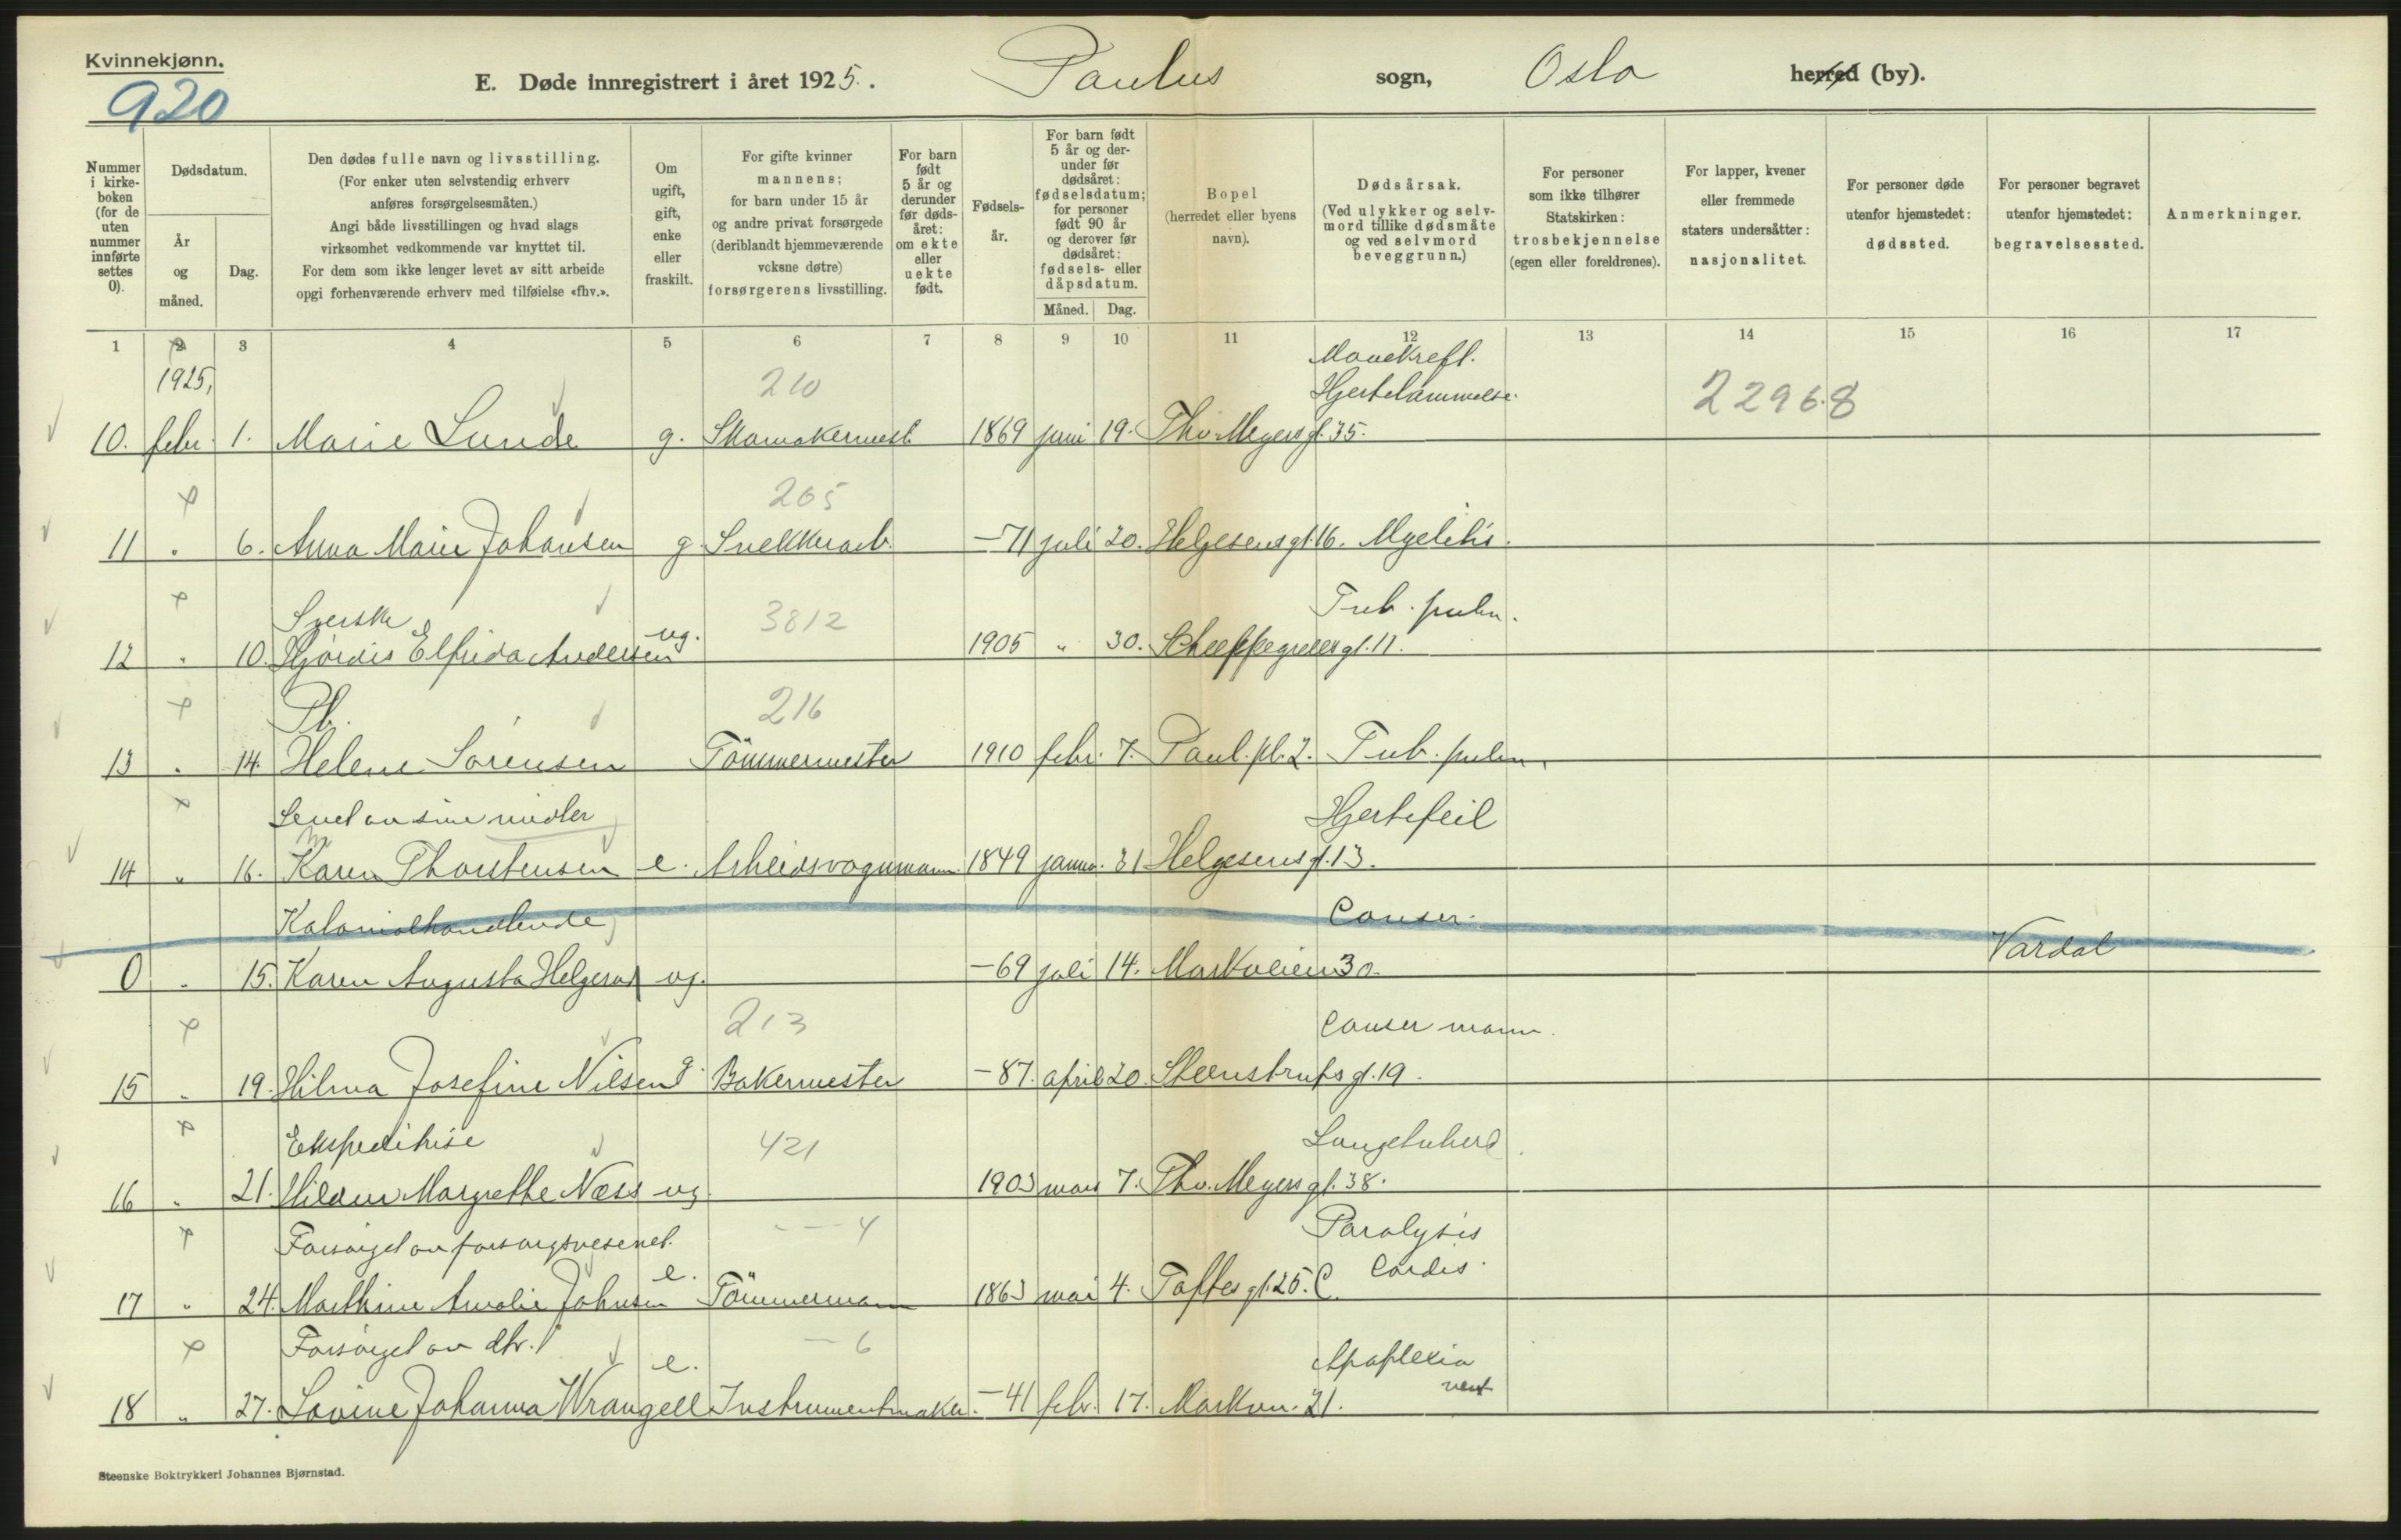 Kvinnekjønn.
920
E. Døde innregistrert i året 1925. Paulus sogn, Oslo herred (by).
Nummer i kirke-boken (for de uten nummer innførte settes 0).
Dødsdatum.
År og måned.
Dag.
Den dødes fulle navn og livsstilling.
(For enker uten selvstendig erhverv
anføres forsørgelsesmåten.)
Angi både livsstillingen og hvad slags
virksomhet vedkommende var knyttet til.
For dem som ikke lenger levet av sitt arbeide
opgi forhenværende erhverv med tilføielse «fhv.».
Om ugift, gift, enke eller fraskilt.
For gifte kvinner
mannens;
for barn under 15 år
og andre privat forsørgede
(deriblandt hjemmeværende
voksne døtre)
forsørgerens livsstilling.
For barn født 5 år og derunder før døds-året: om ekte eller uekte født.
Fødsels-år.
For barn født 5 år og der-under før dødsåret: fødselsdatum; for personer født 90 år og derover før dødsåret: fødsels- eller dåpsdatum.
Måned. Dag.
Bopel
(herredet eller byens
navn).
Dødsårsak.
(Ved ulykker og selv-
mord tillike dødsmåte
og ved selvmord
beveggrunn.)
For personer
som ikke tilhører
Statskirken:
trosbekjennelse
(egen eller foreldrenes).
For lapper, kvener
eller fremmede
staters undersåtter:
nasjonalitet.
For personer døde
utenfor hjemstedet:
dødssted.
For personer begravet
utenfor hjemstedet:
begravelsessted.
Anmerkninger.
1 2 3 4 5 6 7 8 9 10 11 12 13 14 15 16 17
1925, 210 Mavekreft.
Hjertelammelse. 22968
10. febr. 1. Marie Lunde g. Skomakermest. 1869 juni 19. Thv. Meyers gt. 35.
205
11 " 6. Anna Marie Johansen g. Snekkerarb. -71 juli 20. Helgesens gt. 16. Myelitis.
3812 Tub. pulm.
12 " 10. Hjördis Elfrida Andersen ug. 1905 " 30. Scheppegrells gt. 11.
Pb. 216
13 " 14. Helene Sörensen Tömmermester 1910 febr. 7. Paul. pl. 2. Tub. pulm.
Levet av sine midler Hjertefeil
14 " 16. Karen Thorstensen e. Arbeidsvognmann. 1849 janua. 31 Helgesens gt. 13.
Kolonialhandlende Canser.
Vardal
0 " 15. Karen Augusta Helgerud ug. -69 juli 14. Markveien 30.
213 Canser mam.
15 " 19. Hilma Josefine Nilsen g. Bakermester -87. april 20. Steenstrups gt. 19.
Ekspeditrise 421 Lungetuberk.
16 " 21. Margrethe Næss ug. 1903 mars 7. Thv. Meyers gt. 38.
Forsörget av forsorgsvesenet. - — 4 Paralysis
Cordis.
17 " 24. Mathine Amalie Johnsen e. Tömmermann 1863 mai 4. Toftes gt. 25. C.
Forsörget av dtr. — 6 Apoplexia
18 " 27. Lovine Johanna Wrangell e. Instrumentmaker. -41 febr. 17. Markvn. 21.
Steenske Boktrykkeri Johannes Bjørnstad.